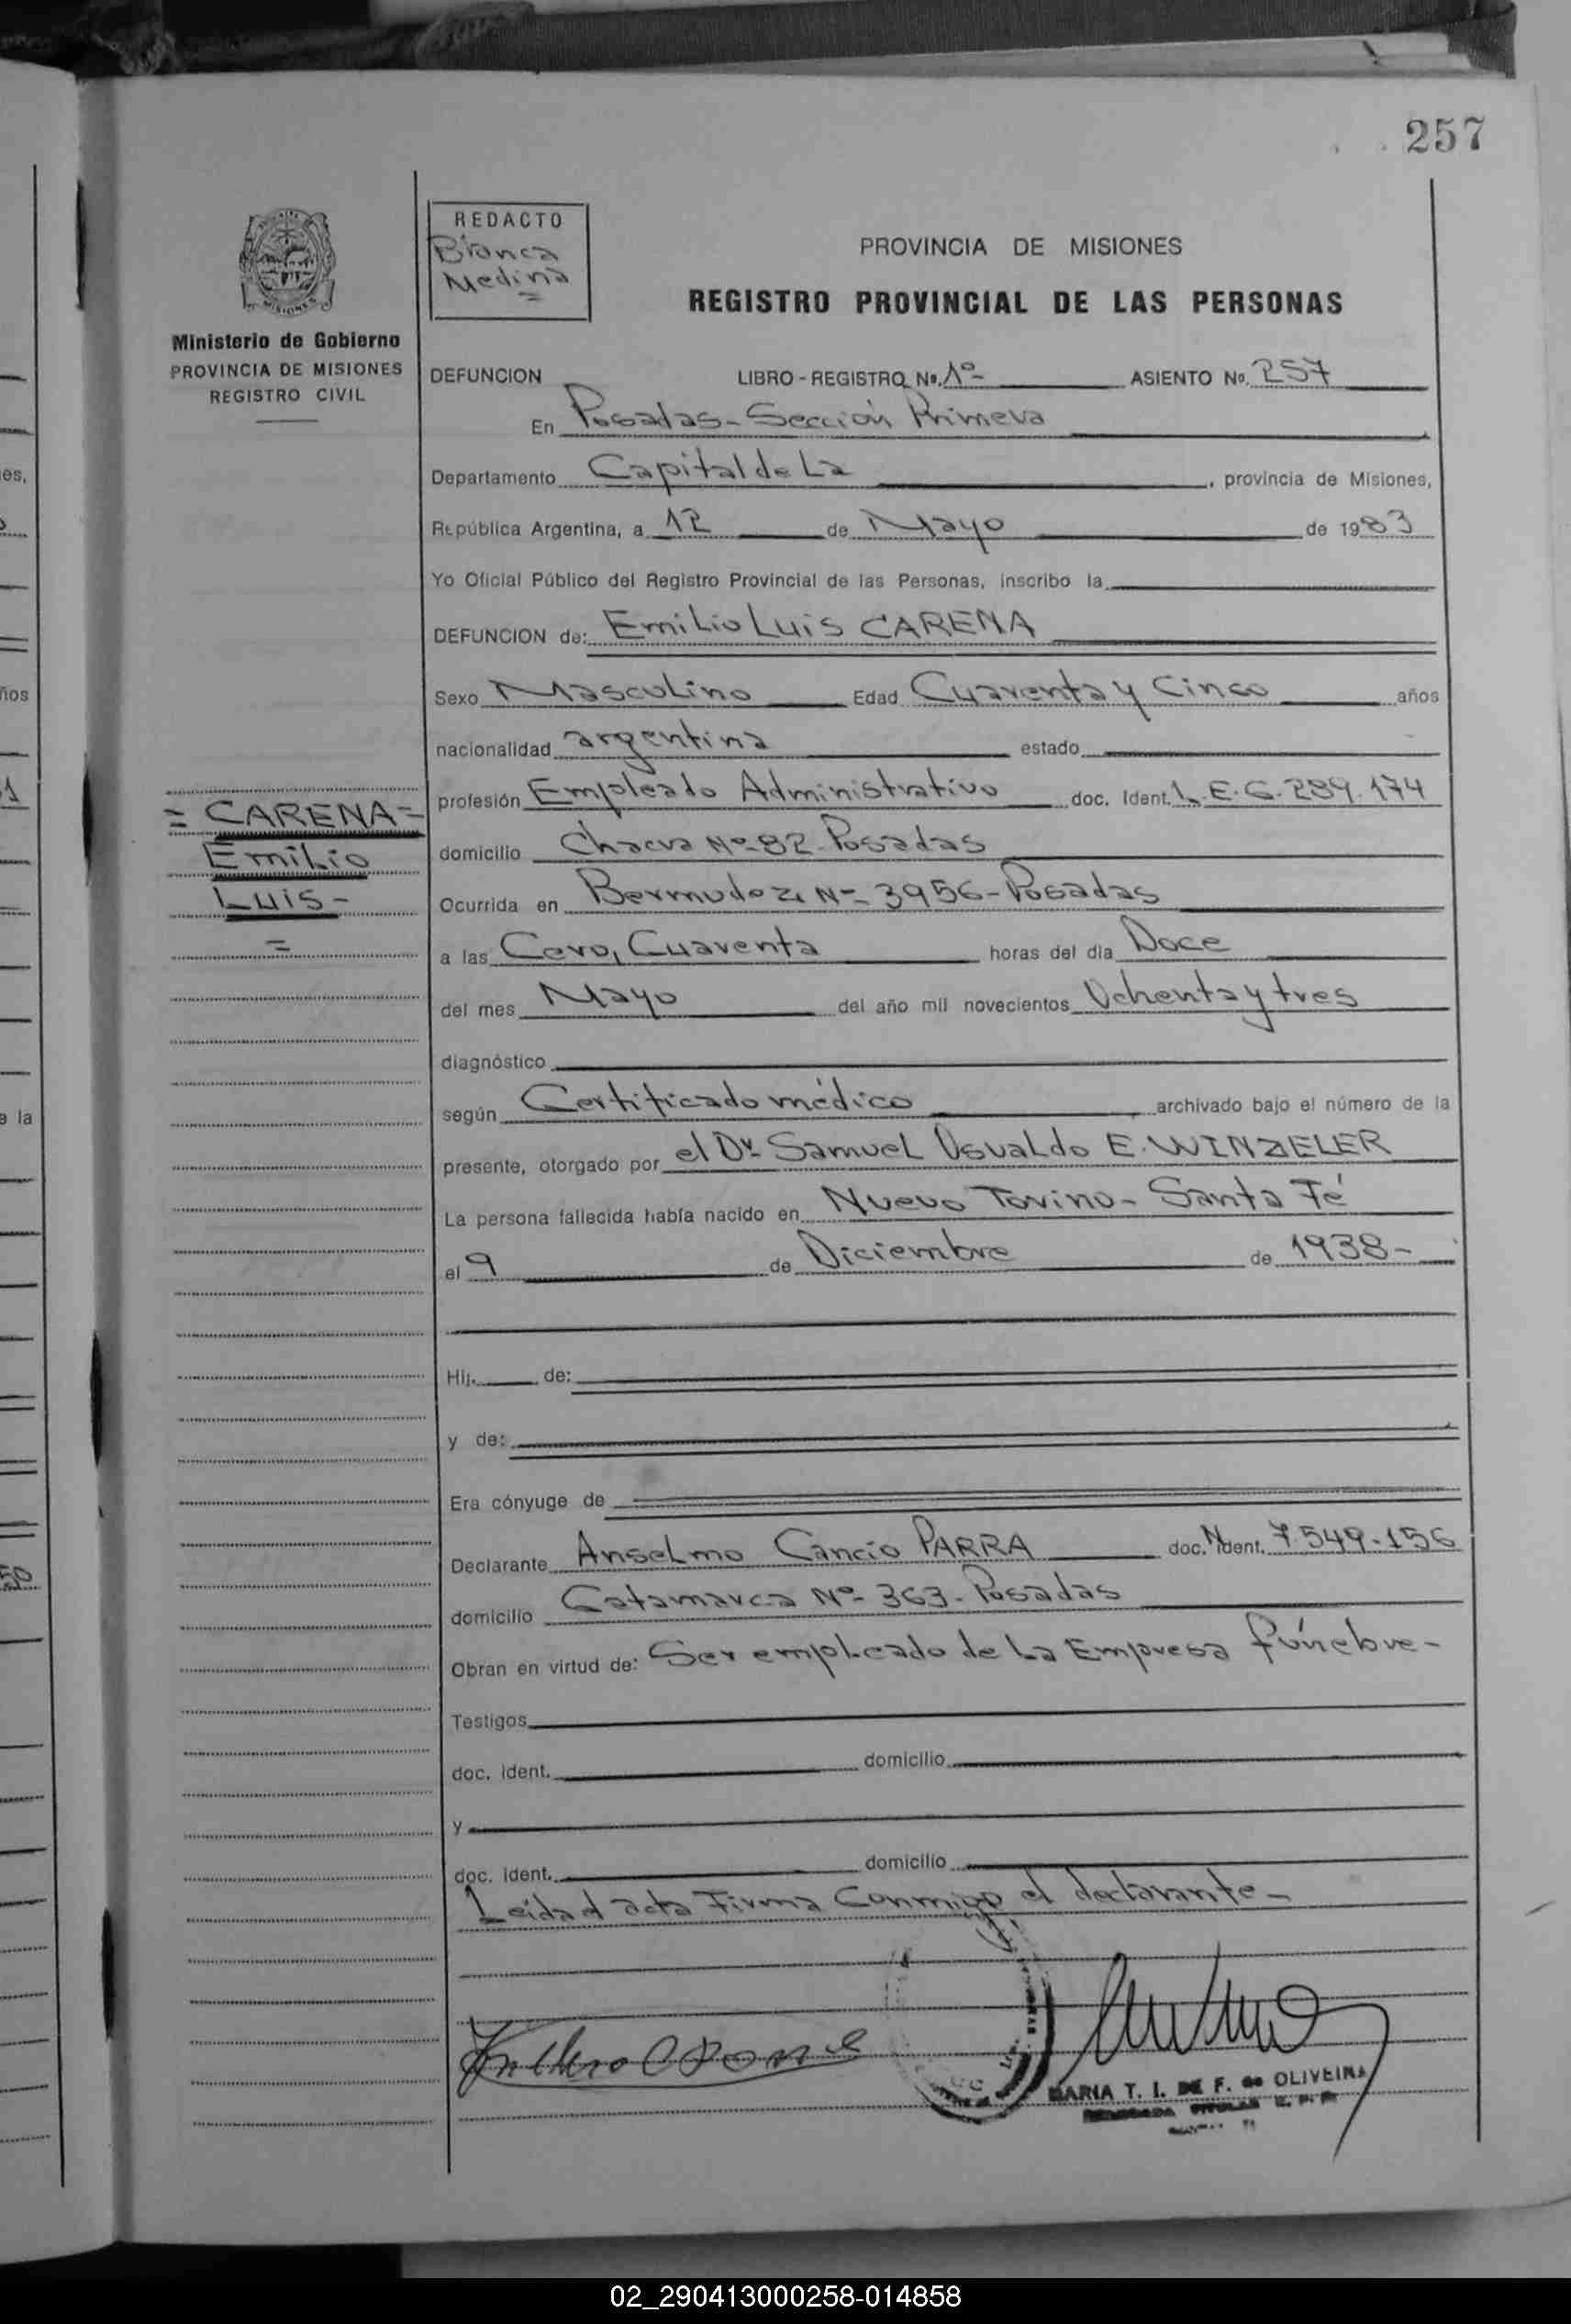 257
REDACTO
Blanca
Medina
=
PROVINCIA DE MISIONES
REGISTRO PROVINCIAL DE LAS PERSONAS
Ministerio de Gobierno
PROVINCIA DE MISIONES
REGISTRO CIVIL
DEFUNCION LIBRO - REGISTRO No. 1º ASIENTO No. 257
En Posadas - Sección Primera
Departamento Capital de La, provincia de Misiones,
República Argentina, a 12 de Mayo de 1983
Yo Oficial Público del Registro Provincial de las Personas, inscribo la
DEFUNCION de: Emilio Luis CARENA
Sexo Masculino Edad Cuarenta y Cinco años
nacionalidad argentina estado
profesión Empleado Administrativo doc. Ident. L.E. 6.289.174
= CARENA =
Emilio
Luis -
=
domicilio Chacra Nº 82 - Posadas
Ocurrida en Bermudez Nº 3956 - Posadas
a las Cero, Cuarenta horas del día Doce
del mes Mayo del año mil novecientos Ochenta y tres
diagnóstico
según Certificado médico archivado bajo el número de la
presente, otorgado por el Dr. Samuel Osvaldo E. WINZELER
La persona fallecida había nacido en Nuevo Torino - Santa Fé
el 9 de Diciembre de 1938 -
Hij. de:
y de:
Era cónyuge de
Declarante Anselmo Cancio PARRA doc. Ident. 7.549.156
domicilio Catamarca Nº 363 - Posadas
Obran en virtud de: Ser empleado de La Empresa fúnebre -
Testigos
doc. ident. domicilio
y
doc. ident. domicilio
Leída el acta Firma Conmigo el declarante -
MARIA T. I. DE F. de OLIVEIRA
02_290413000258-014858